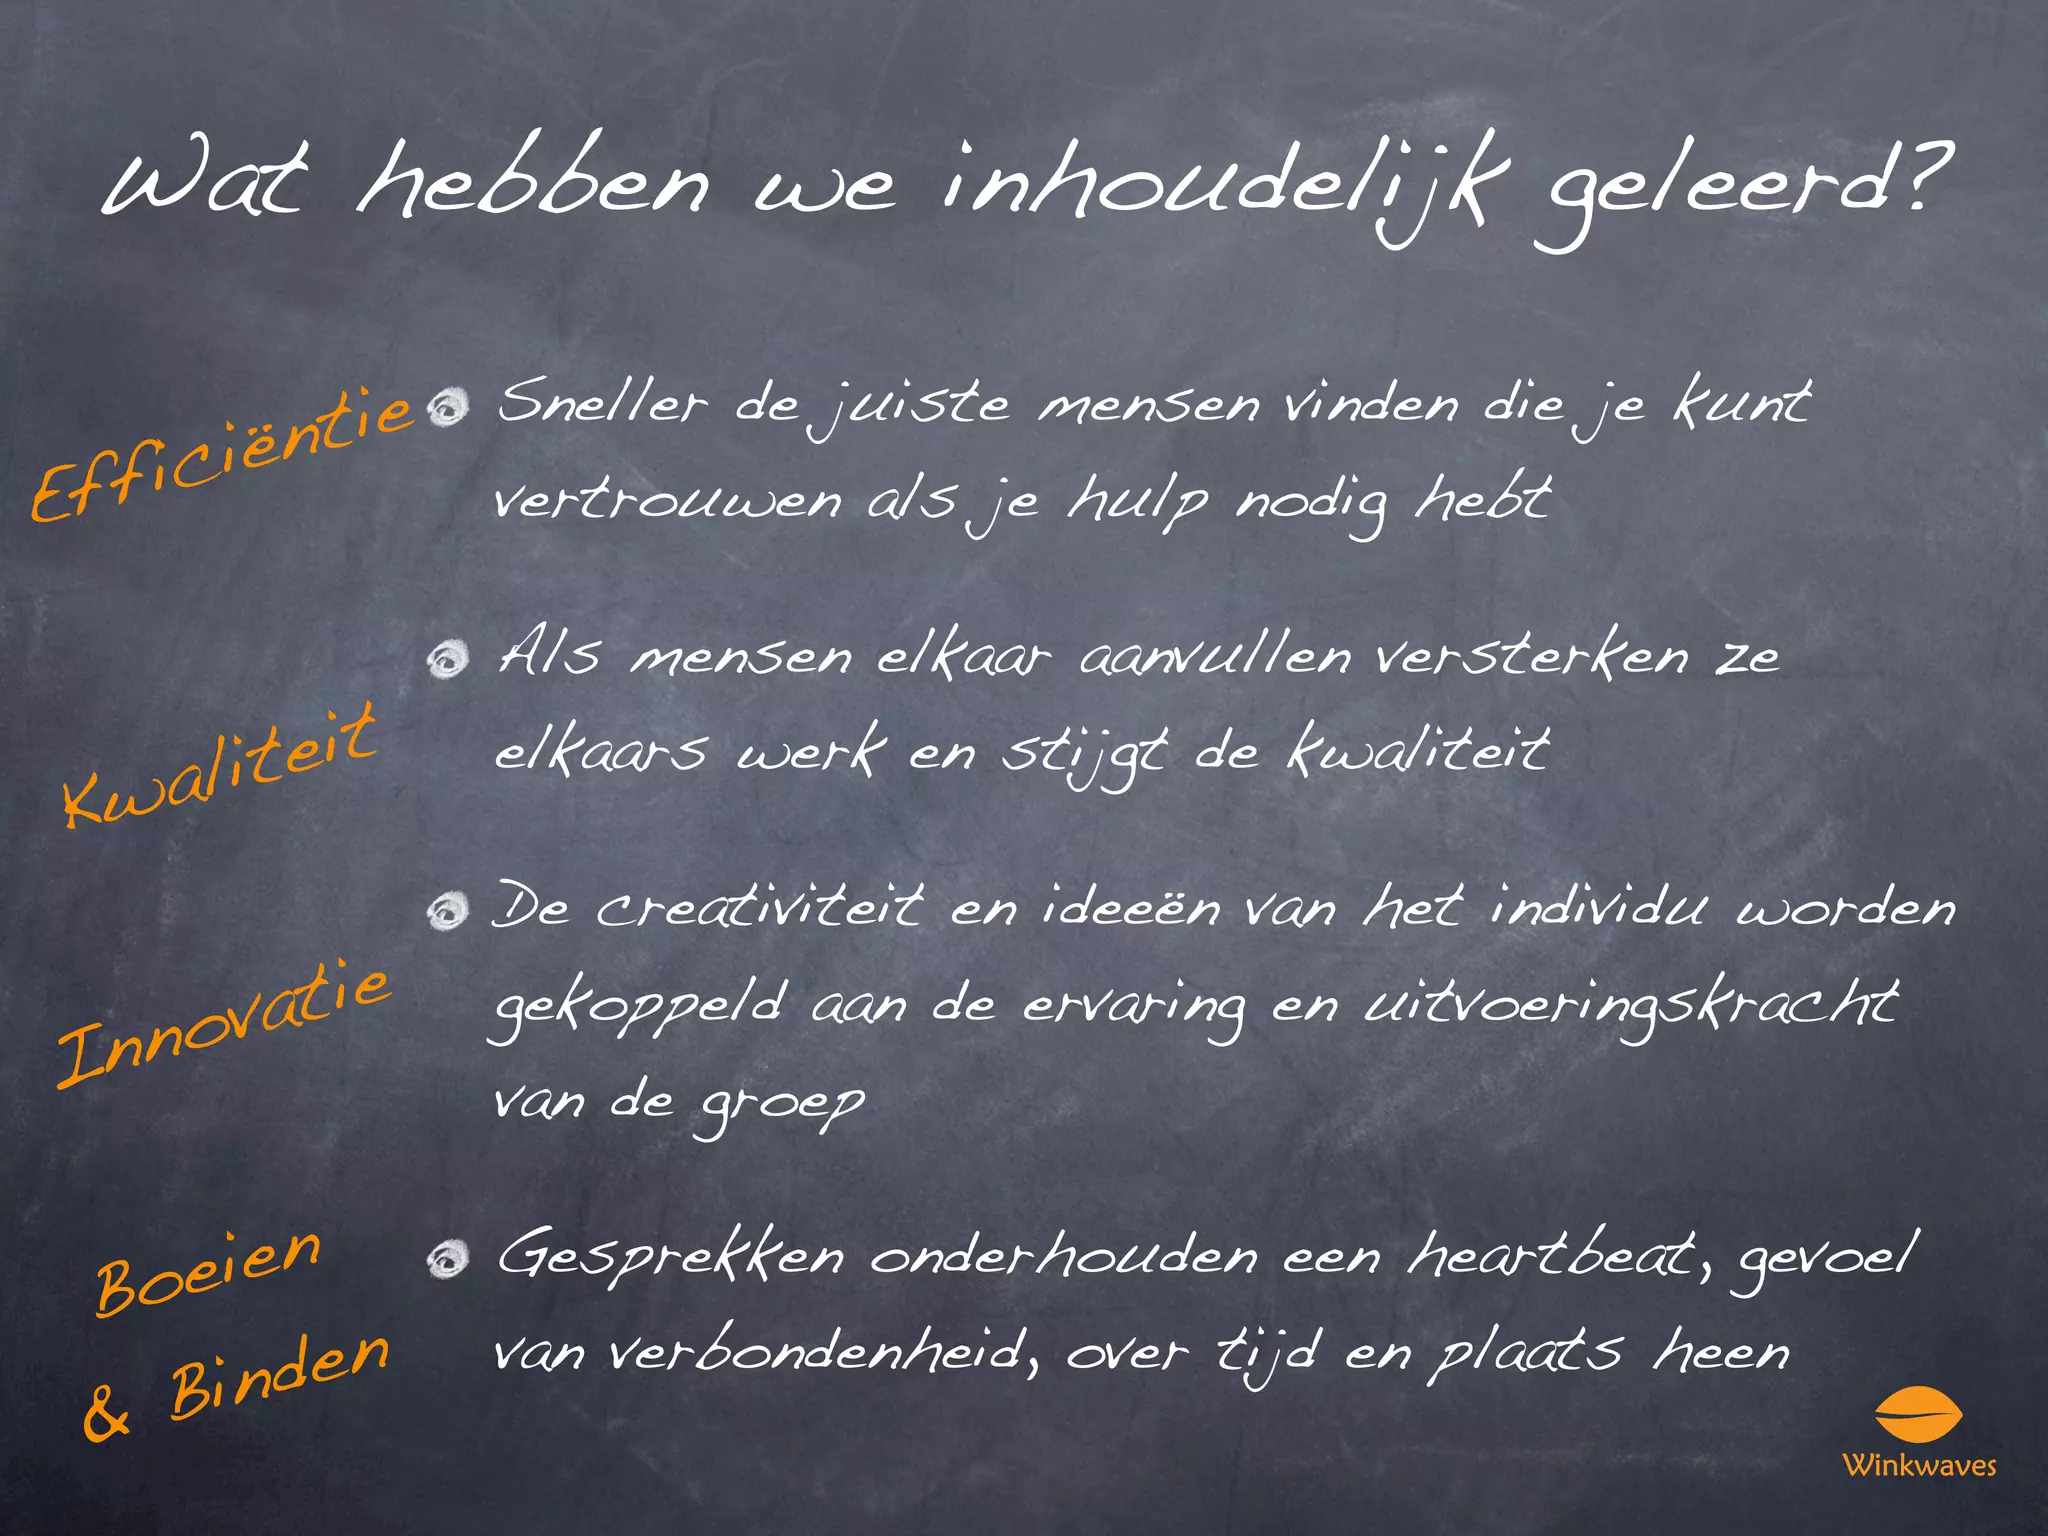 Wat hebben we inhoudelijk geleerd?
Efficiëntie
Sneller de juiste mensen vinden die je kunt
vertrouwen als je hulp nodig hebt
Kwaliteit
Als mensen elkaar aanvullen versterken ze
elkaars werk en stijgt de kwaliteit
Innovatie
De creativiteit en ideeën van het individu worden
gekoppeld aan de ervaring en uitvoeringskracht
van de groep
Boeien
& Binden
Gesprekken onderhouden een heartbeat, gevoel
van verbondenheid, over tijd en plaats heen
Winkwaves